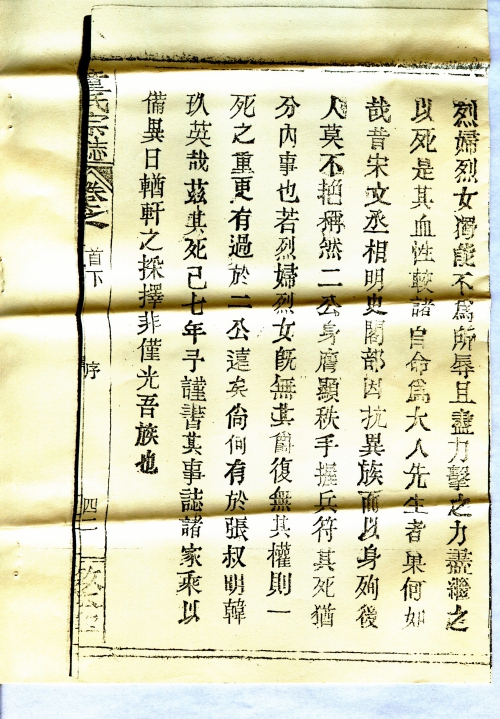 烈婦烈女獨能不爲所辱且盡力擊之力盡繼之
以死是其血性較諸自命爲大人先生者果何如
哉昔宋文丞相明史閣部因抗異族而以身殉後
人莫不艳稱然二公身膺顯秩手握兵符其死猶
分內事也若烈婦烈女既無其爵復無其權則一
死之重更有過於二公遠矣尙何有於張叔明韓
玖英哉茲其死已七年予謹書其事誌諸家乘以
備異日輶軒之採擇非僅光吾族也
童氏宗誌
卷之
首下
序
四二